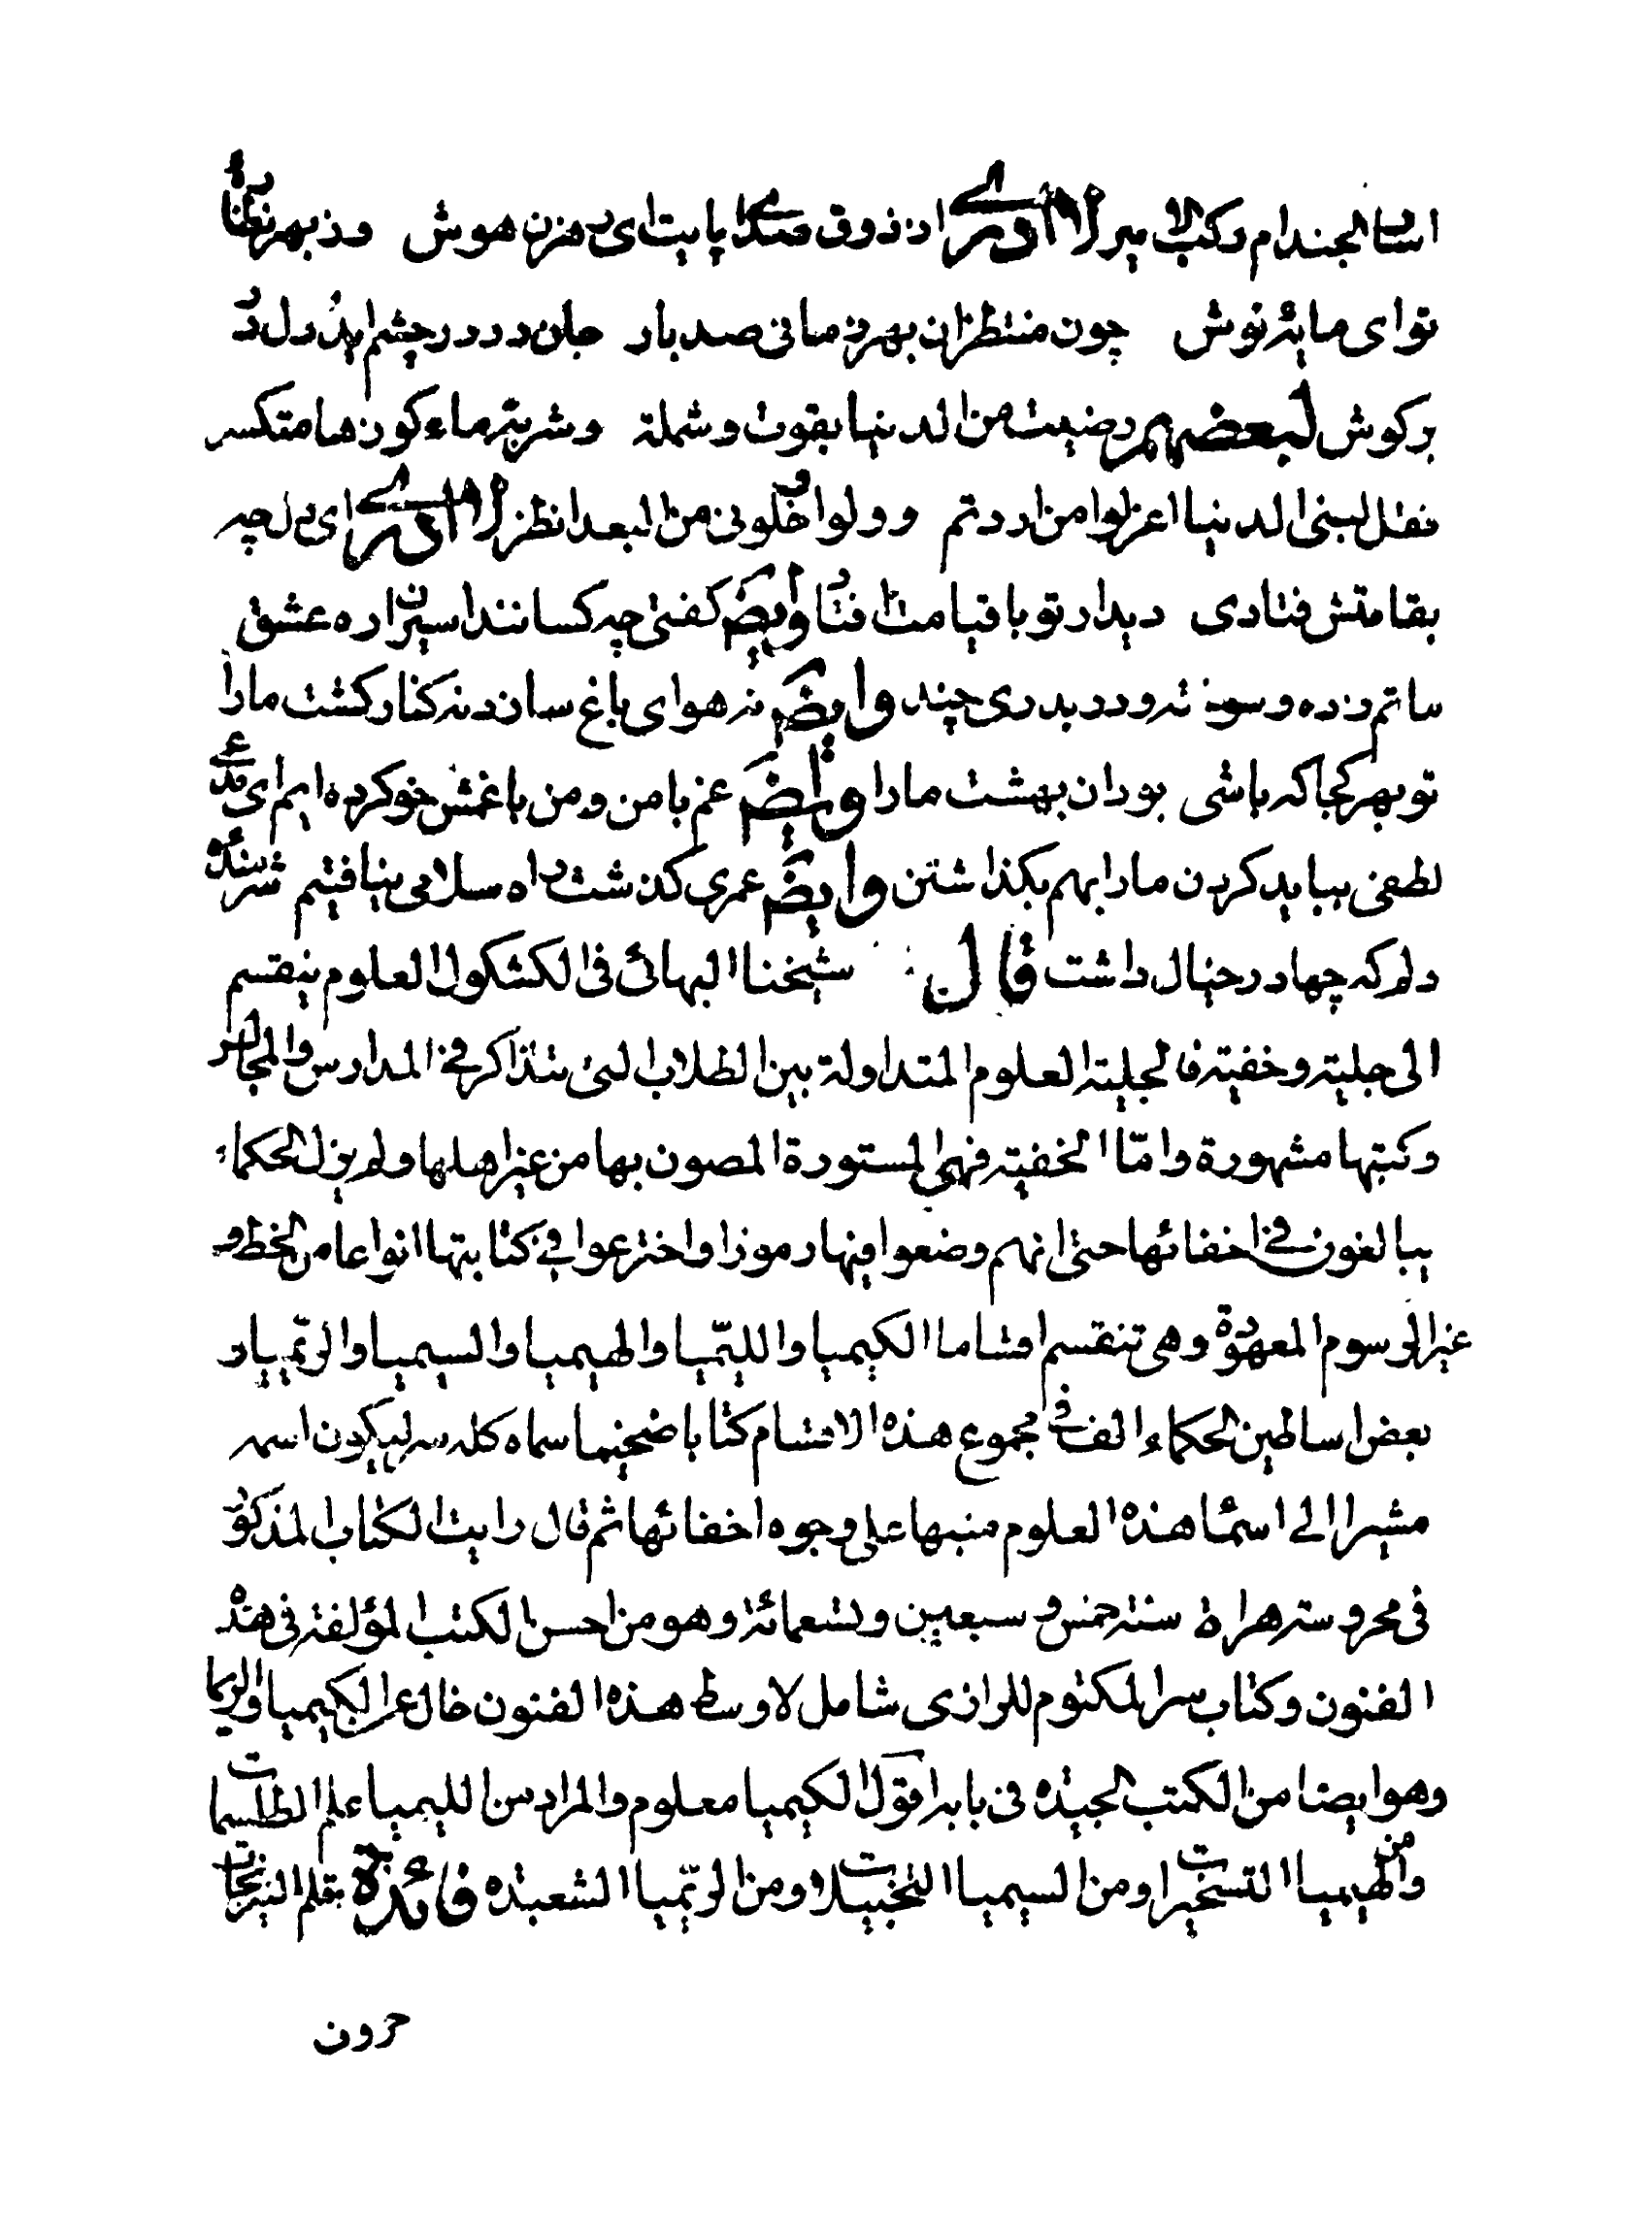 اسنان الجندام وکتب الامیر لا ادری از ذوق صدای پایت ای رهزن هوش وز بهر نظارهٔ
تو ای مایهٔ نوش چون منتظران بهر زمانی صد بار جان در در چشم اید دل در
بر کوش لبعضهم رضیت من الدنیا بقوت وشملة وشربة ماء کوزها متکسر
فقل لبنی الدنیا اعزلوا من اردتم وولوا وخلونی من البعد انظر لا ادری ای دل چه
بقامتش فتادی دیدار تو با قیامت افتاد وایضَ کفتی چه کسانند اسیران ره عشق
ماتم زده و سوخته و در بدری چند وایضَ نه هوای باغ سازد نه کنار کشت مارا
تو بهر کجا که باشی بود ان بهشت مارا وایضَ غم با من ومن با غمش خو کرده ایم ای مدعی
لطفی بباید کردن مارا بهم بکذاشتن وایضَ عمری کذشت راه سلامی نیافتیم شرمنده
دلم که چها در خیال داشت قال شیخنا البهائی فی الکشکول العلوم ینقسم
الی جلیة وخفیة فالجلیة العلوم المتداولة بین الطلاب التی تتذاکر فی المدارس والمجالس
وکتبها مشهورة وامّا الخفیة فهی المستورة المصون بها من غیر اهلها ولم یزل الحکماء
یبالغون فی اخفائها حتی انهم وضعوا فیها رموزا واخترعوا فی کتابتها انواعا من الخطوط
غیر الرسوم المعهودة وهی تنقسم اقساما الکیمیا واللیّمیا والهیمیا والسیمیا والریّمیا و
بعض اساطین الحکماء الف فی مجموع هذه الاقسام کتابا ضخیما سماه کله سر لیکون اسمه
مشیرا الی اسماء هذه العلوم منبها علی وجوه اخفائها ثم قال رایت الکتاب المذکور
فی محروسة هراة سنة خمس و سبعین وتسعمائة وهو من احسن الکتب المؤلفة فی هذه
الفنون وکتاب سر المکتوم للرازی شامل لاوسط هذه الفنون خال عن الکیمیا والریمیا
وهو ایضا من الکتب الجیدة فی بابه اقول الکیمیا معلوم والمراد من اللیمیاء علم الطلسمات
ومن الهیمیا التسخیرات ومن السیمیا التخییلات ومن الریّمیا الشعبذه فائدة بقلم النیرنجات
حرون